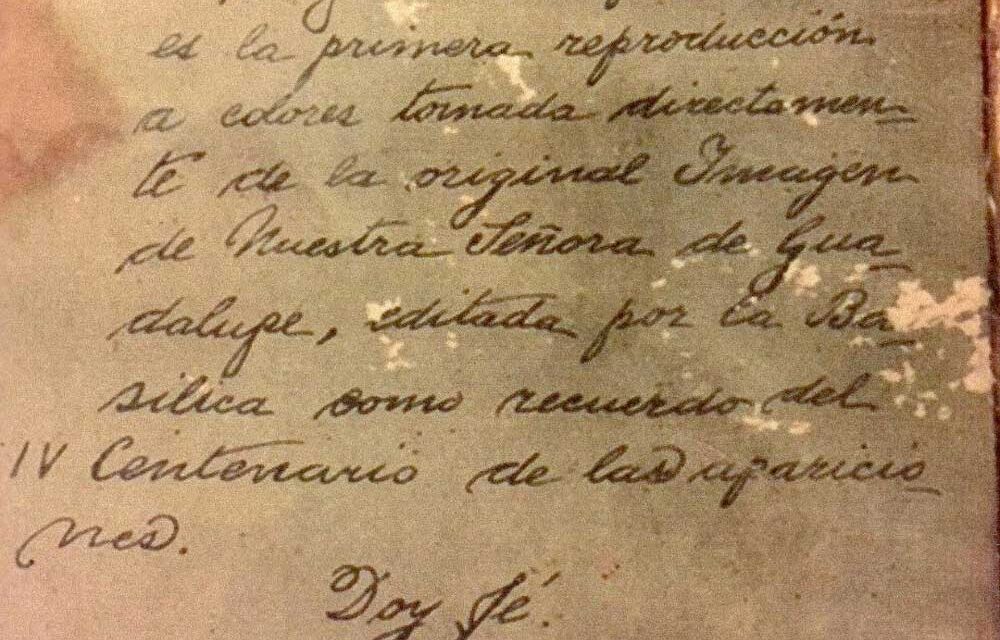 es la primera reproducción
a colores tomada directamen-
te de la original Imagen
de Nuestra Señora de Gua-
dalupe, editada por la Ba-
silica como recuerdo del
IV Centenario de las aparicio-
nes.
Doy fé.